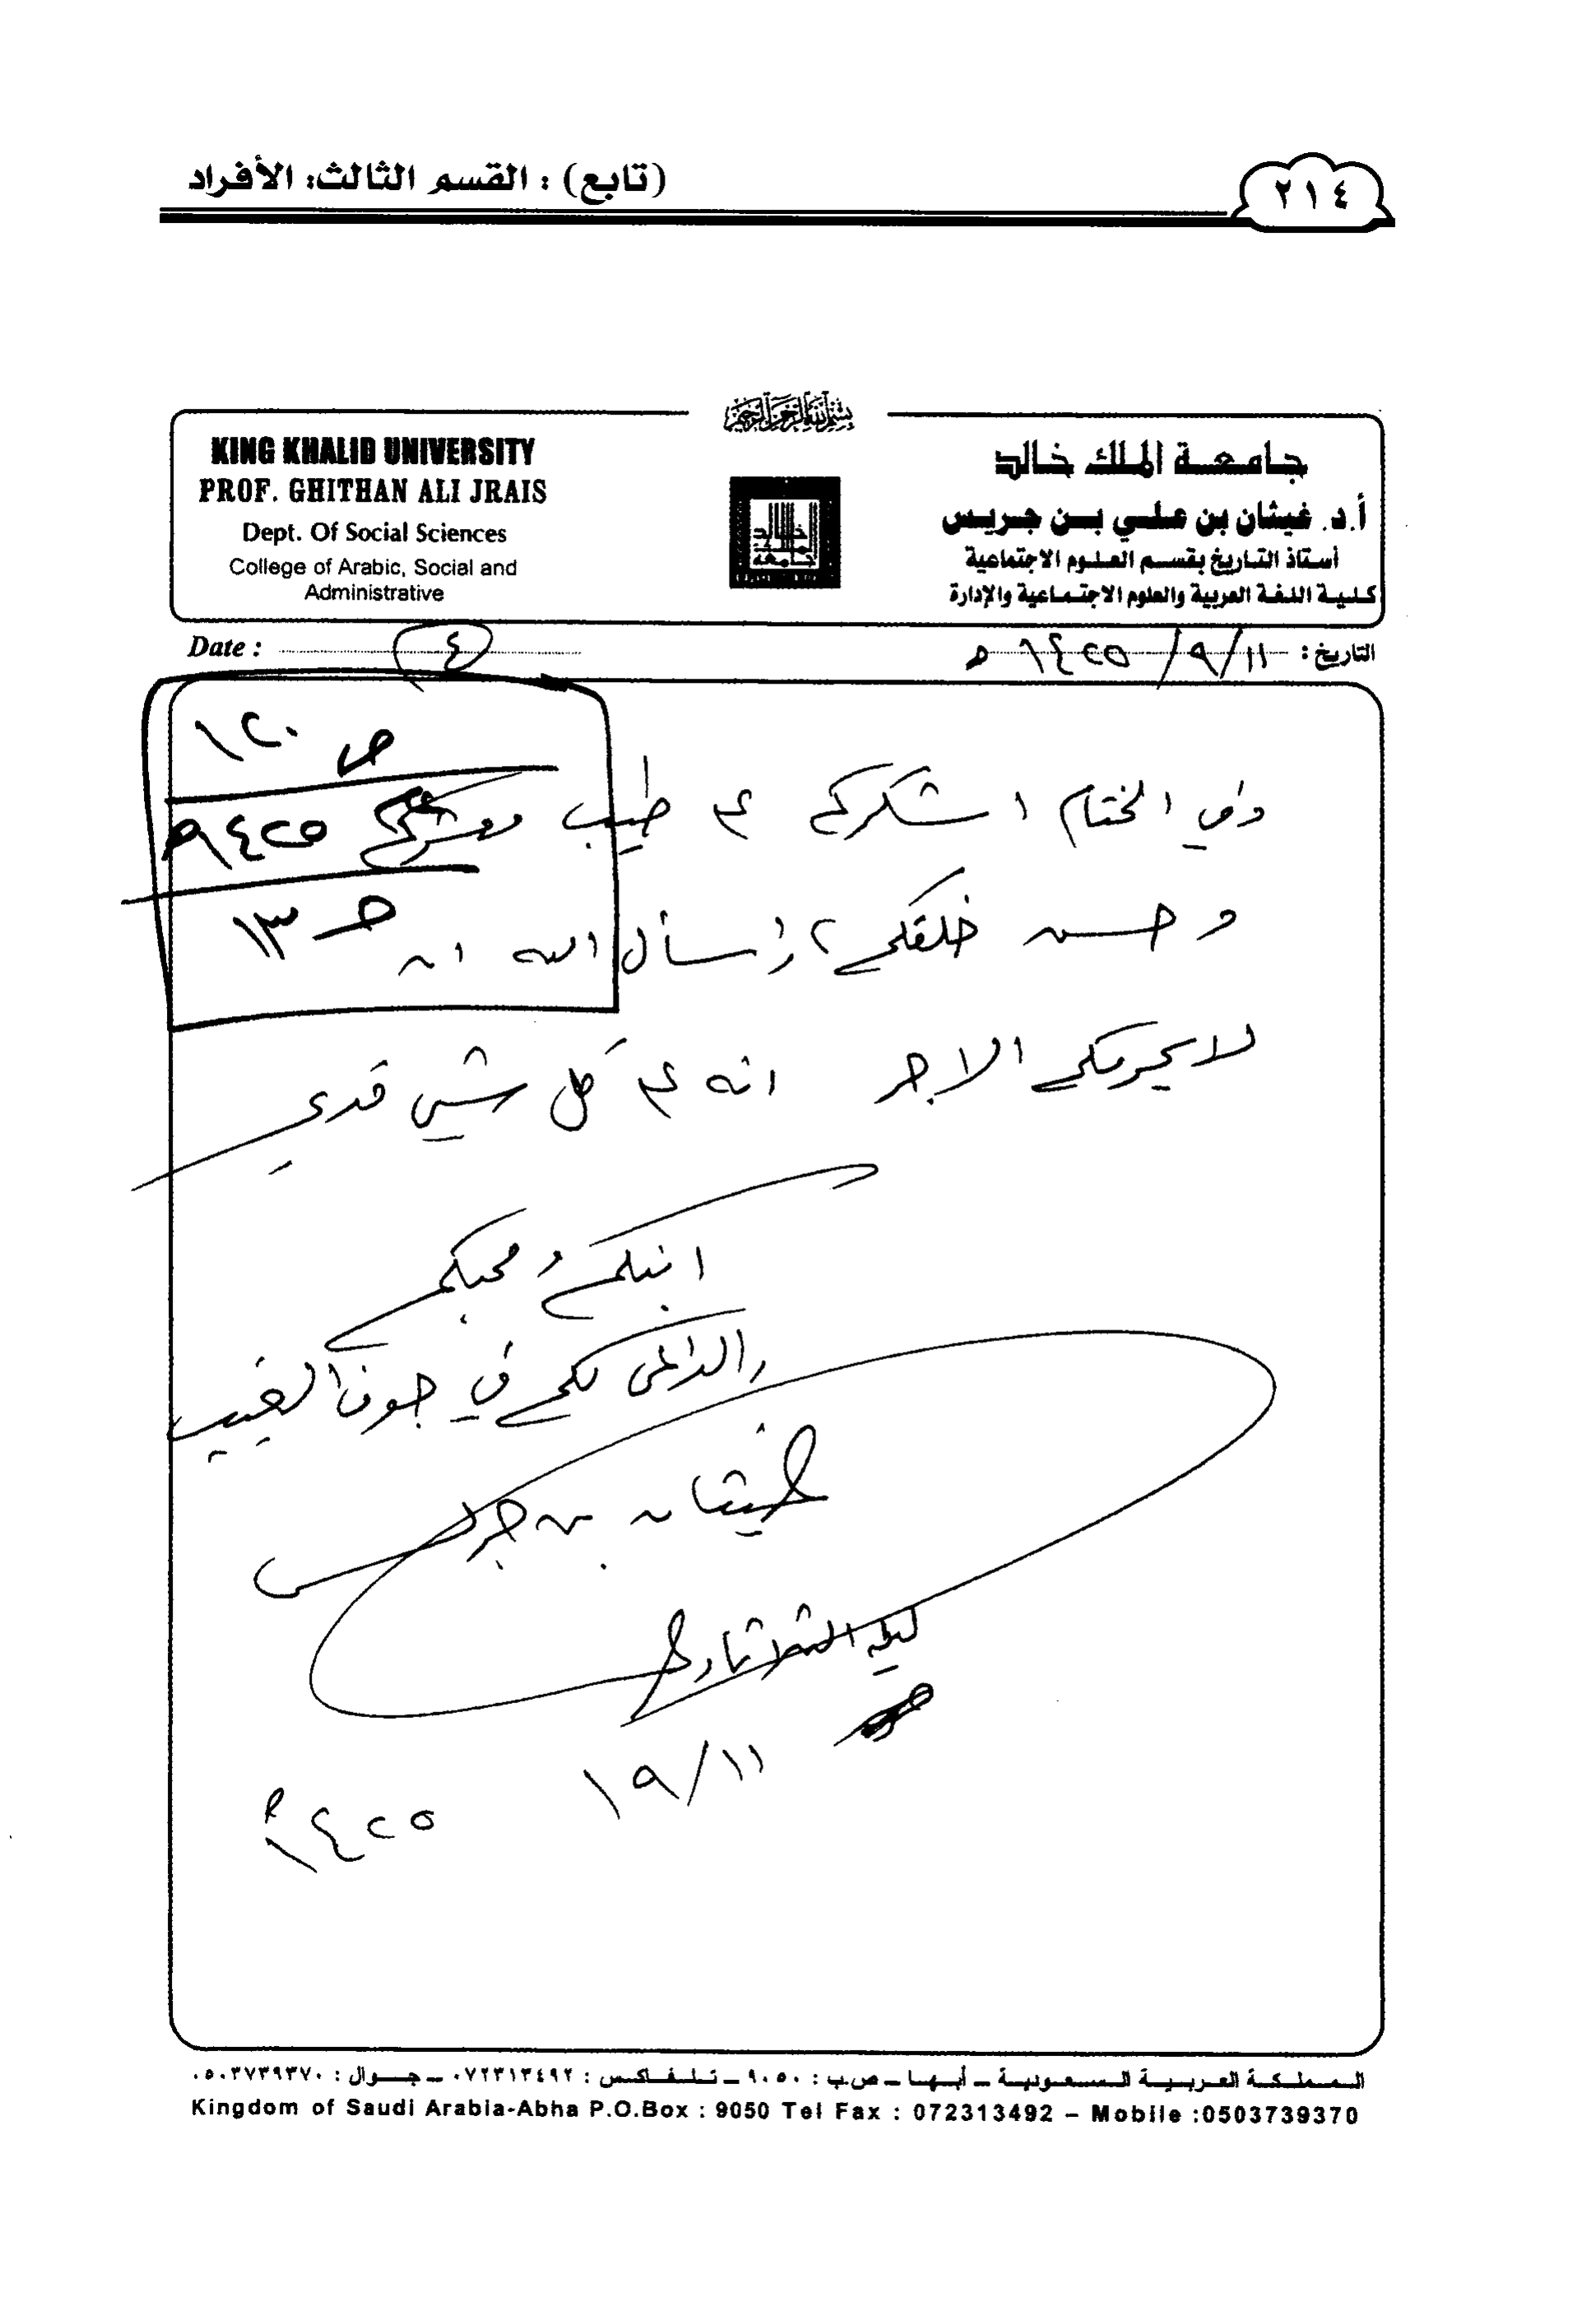 (تابع) : القسم الثالث: الأفراد
٢١٤
بسم الله الرحمن الرحيم
KING KHALID UNIVERSITY
PROF. GHITHAN ALI JRAIS
Dept. Of Social Sciences
College of Arabic, Social and
Administrative
جامعة الملك خالد
أ.د. غيثان بن علي بن جريس
أستاذ التاريخ بقسم العلوم الاجتماعية
كلية اللغة العربية والعلوم الاجتماعية والإدارة
Date :
٤
التاريخ : ١١/٩/١٤٢٥هـ
ص ١٢٠
١٤٢٥هـ
حـ ١٣
وفي الختام اشكركم على طيب
وحسن خلقكم، واسأل الله ان
لا يحرمكم الاجر انه على كل شيء قدير
ابنكم ومحبكم
والداعي لكم في جوف الغيب
غيثان بن جريس
ليلة
١١/٩
١٤٢٥هـ
المملكة العربية السعودية - أبها - ص.ب : ٩٠٥٠ - تلفاكس : ٠٧٢٣١٣٤٩٢ - جوال : ٠٥٠٣٧٣٩٣٧٠
Kingdom of Saudi Arabia-Abha P.O.Box : 9050 Tel Fax : 072313492 – Mobile :0503739370